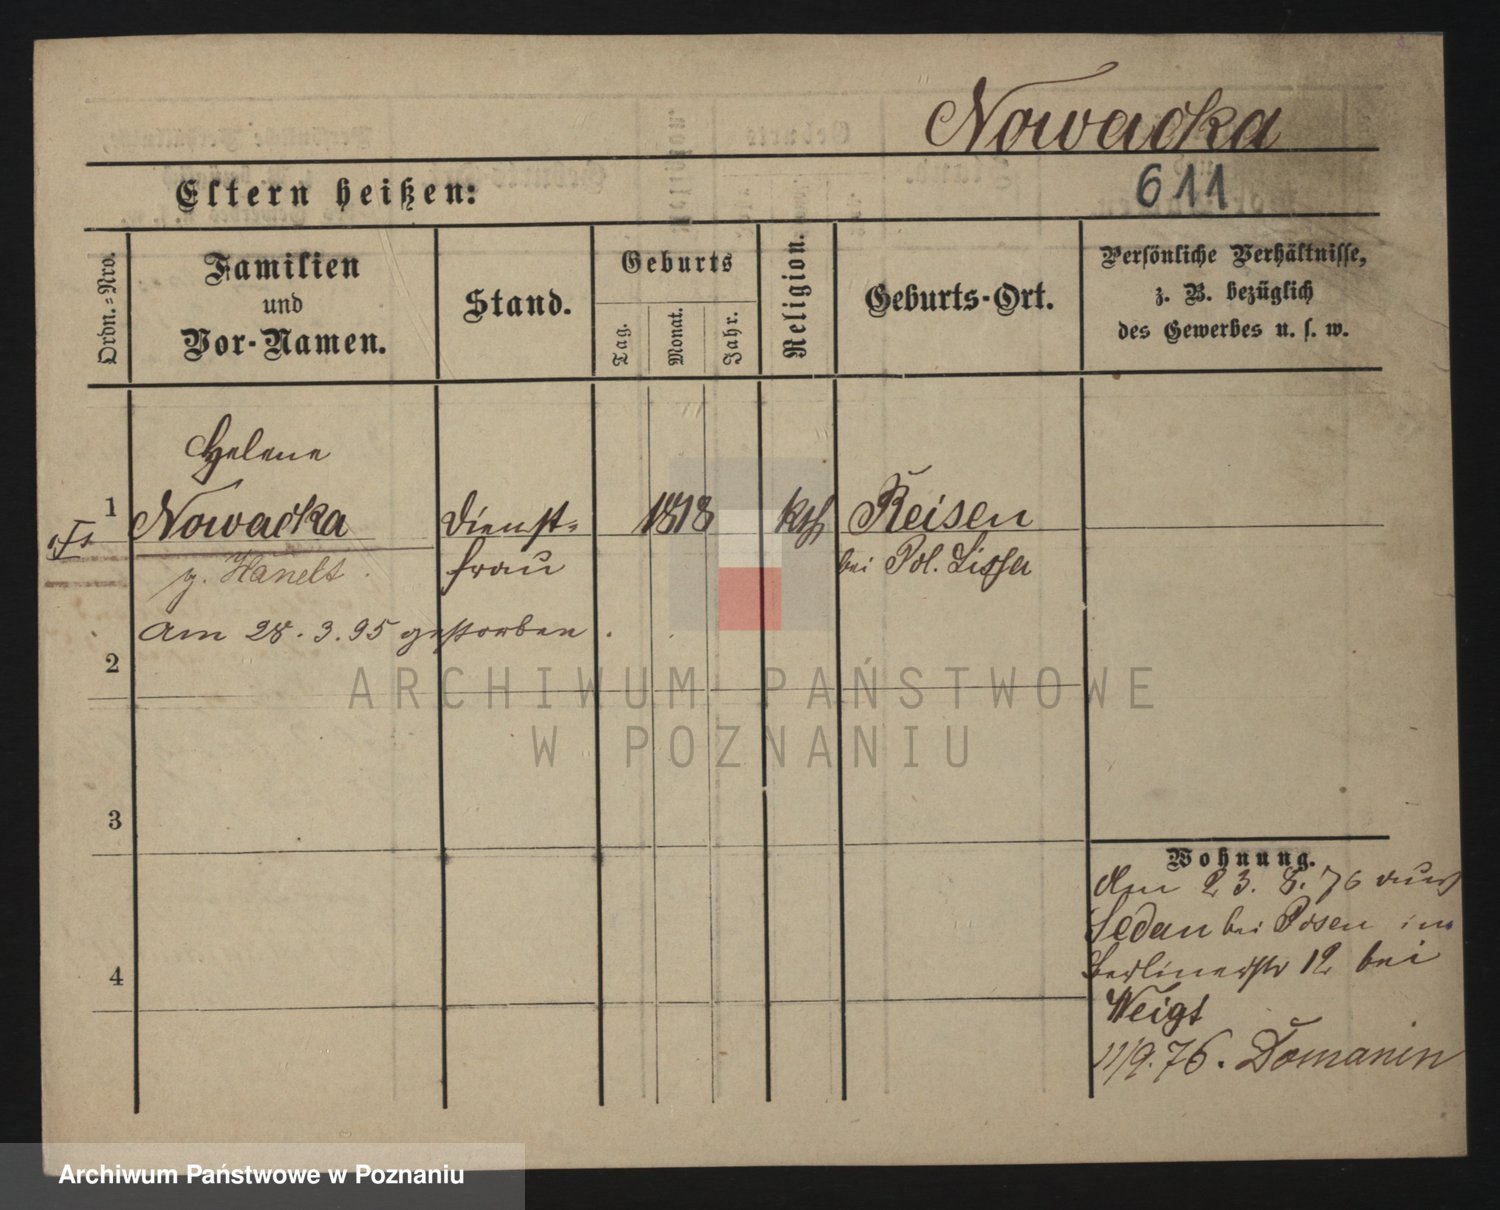 Nowacka
611
Eltern heißen:
Ordn.-Nro.
Familien
und
Vor-Namen.
Stand.
Geburts
Tag.
Monat.
Jahr.
Religion.
Geburts-Ort.
Persönliche Verhältnisse,
z. B. bezüglich
des Gewerbes u. s. w.
Helene
1 Nowacka Dienst- 1818 kth Reisen
g. Hanelt frau bei Pol. Lissa
am 28.3.95 gestorben.
2
3
4
Wohnung.
Am 23. 8. 76 nach
Sedan bei Posen in
Berlinerstr 12 bei
Weigt
11/9.76. Domanin
ARCHIWUM PAŃSTWOWE
W POZNANIU
Archiwum Państwowe w Poznaniu